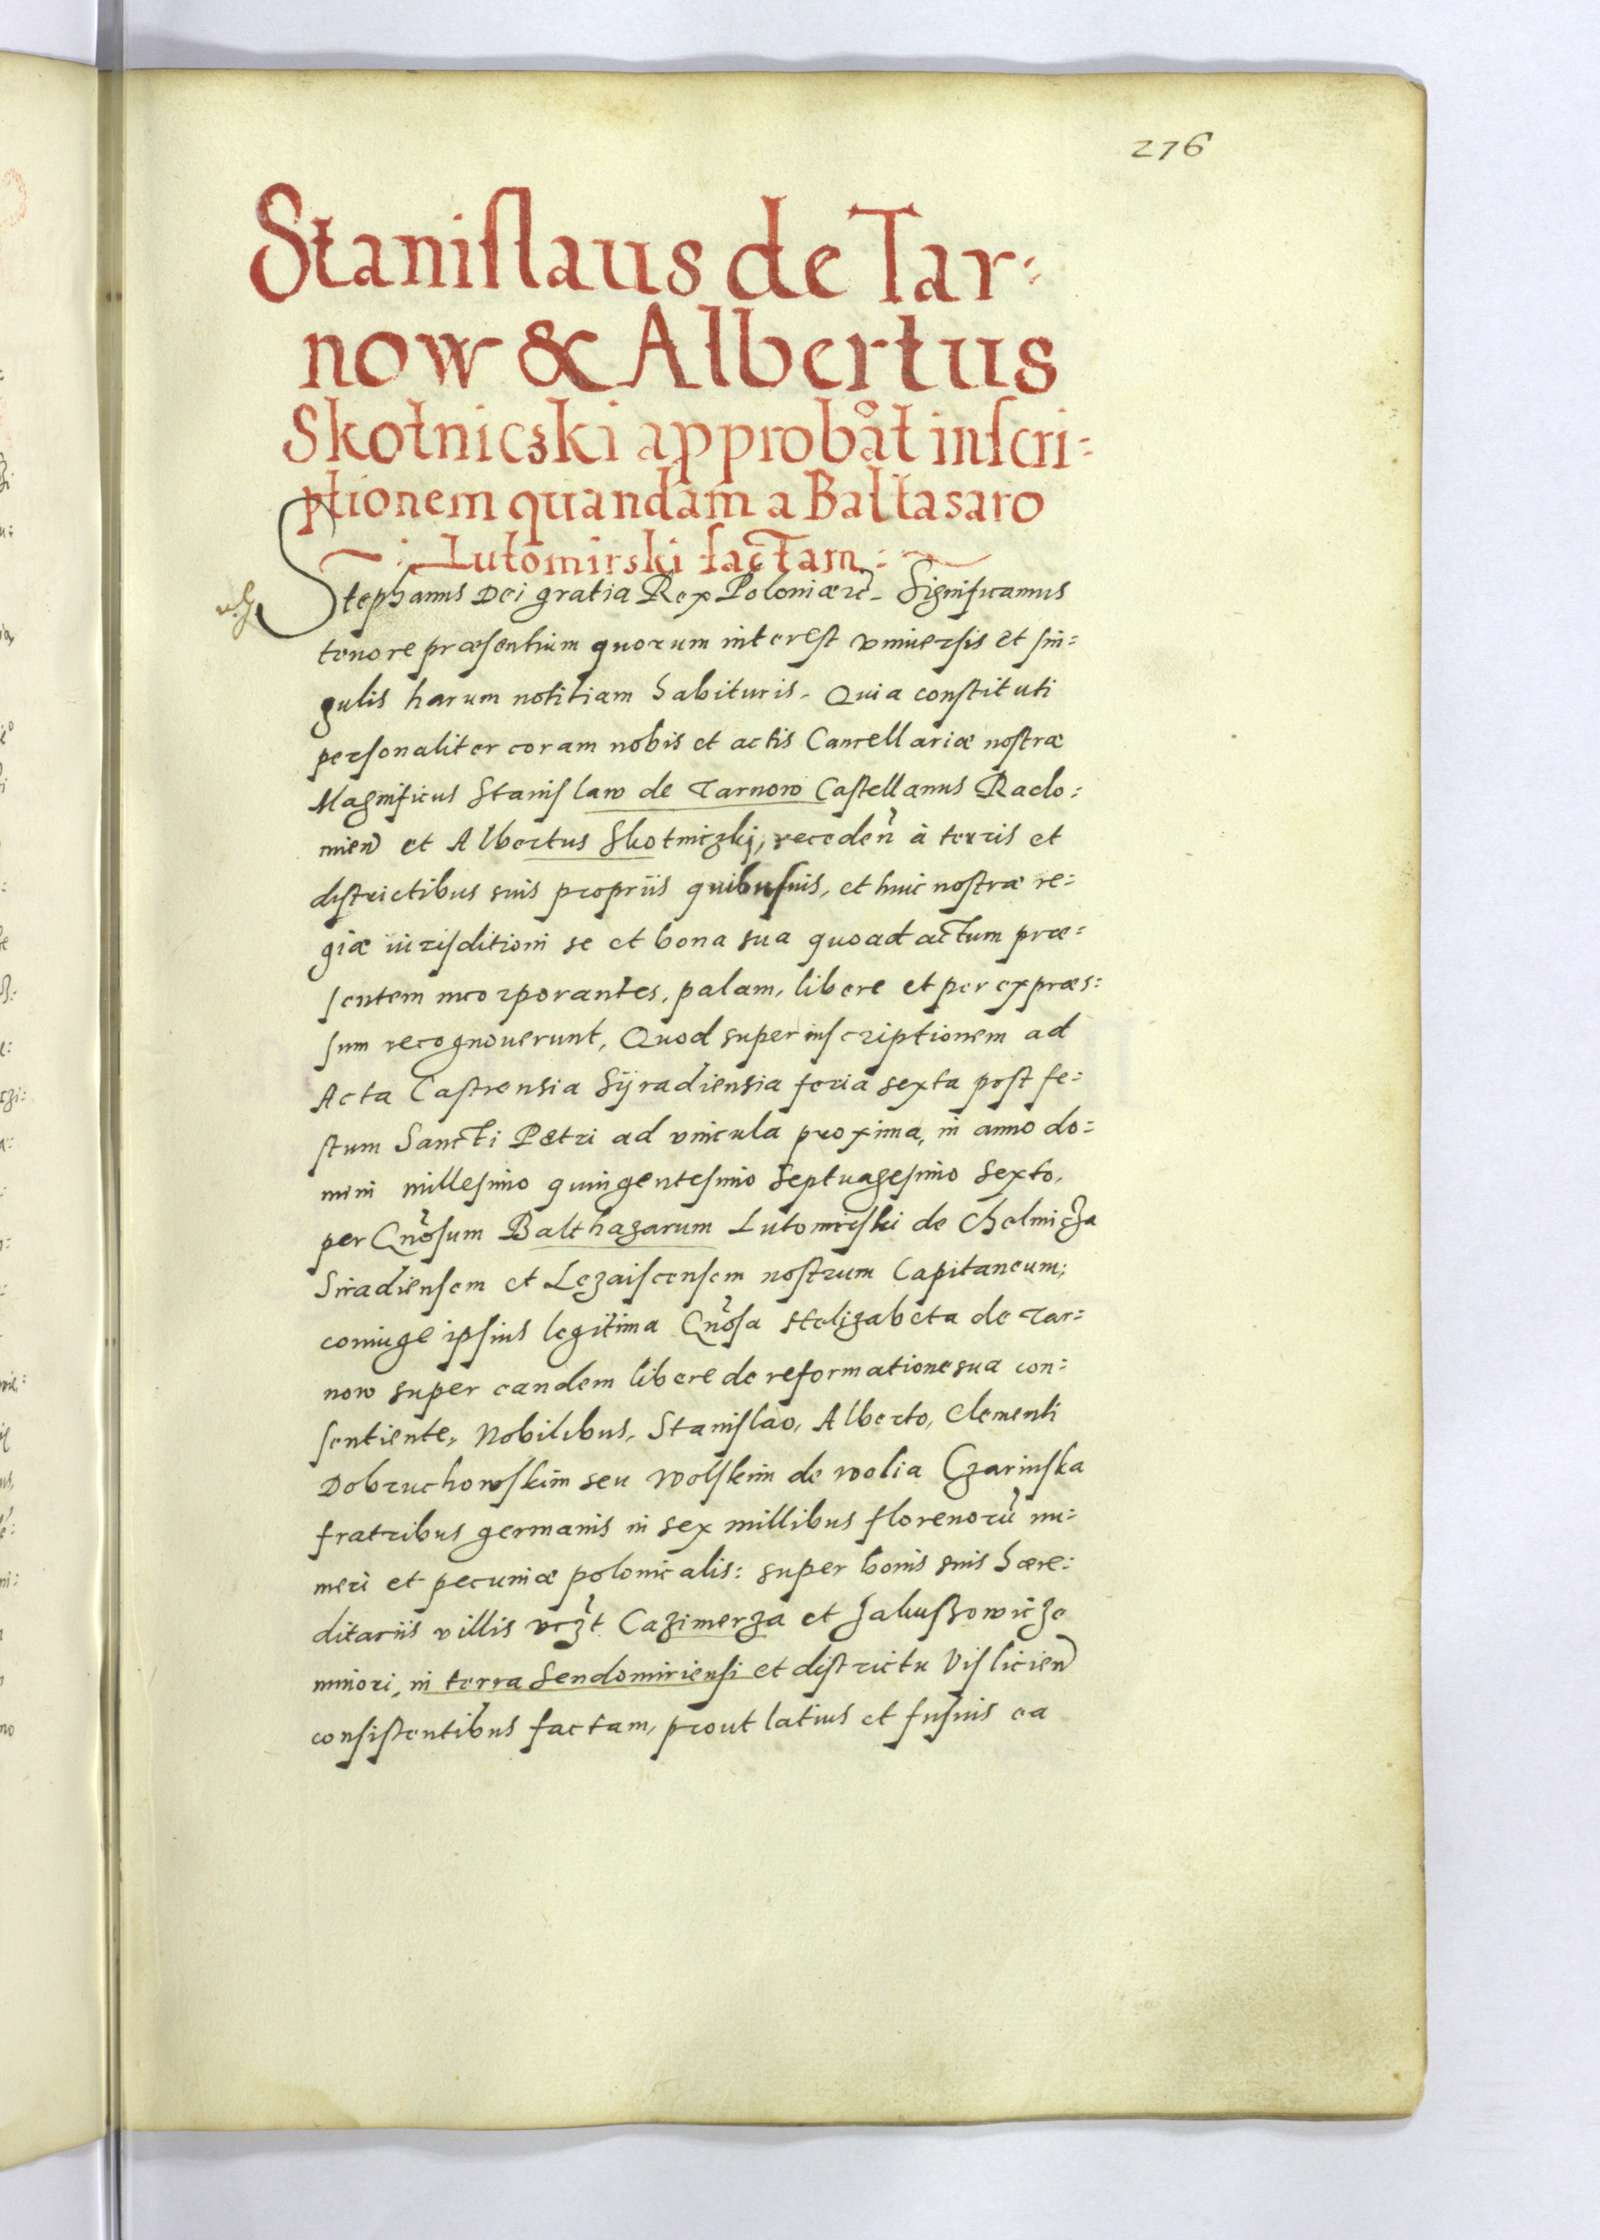 276
Staniſlaus de Tar:
now & Albertus
Skotnicski approbãt inſcri:
ptionem quandam a Baltasaro
Lutomirski factam
Stephanus Dei gratia Rex Poloniæ Significamus
tenore præsentium quorum interest vniuersis et sin:
gulis harum notitiam habituris. Quia constituti
personaliter coram nobis et actis Cancellariæ nostræ
Magnificus Stanislaw de Tarnow Castellanus Rado:
mien et Albertus Skotniczkj, receden à terris et
districtibus suis propriis quibusuis, et huic nostræ re:
giæ iurisditioni se et bona sua quoad actum præ:
sentem incorporantes, palam, libere et per expræs:
sum recognouerunt, Quod super inscriptionem ad
Acta Castrensia Sÿradiensia feria sexta post fe:
stum Sancti Petri ad vincula proxima, in anno do:
mini millesimo quingentesimo Septuagesimo Sexto,
per Gnosum Balthazarum Lutomirski de Chelmicza
Siradiensem et Lezaiscensem nostrum Capitaneum;
coniuge ipsius legitima Gnosa Helizabeta de Tar:
now super eandem libere de reformatione sua con:
sentiente, Nobilibus, Stanislao, Alberto, Clementi
Dobruchowskim seu Wolskim de wolia Czarinska
fratribus germanis in sex millibus florenorũ nu:
meri et pecuniæ polonicalis: super bonis suis hære:
ditariis villis vczt Cazimerza et Jakuszowicze
minori, in terra Sendomiriensi et districtu Vislicien
consistentibus factam, prout latius et fusius ea